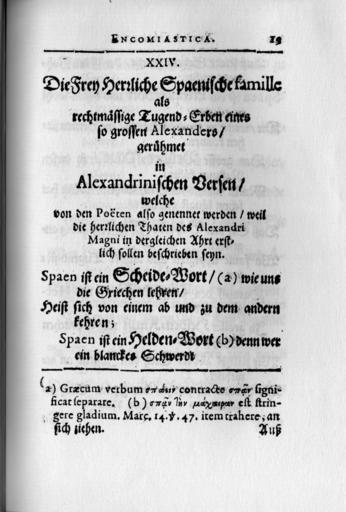 ENCOMIASTICA. 19
XXIV.
Die Frey Herrliche Spaenische famille
als
rechtmässige Tugend-Erben eines
so grossen Alexanders/
gerühmet
in
Alexandrinischen Versen/
welche
von den Poëten also genennet werden/ weil
die herrlichen Thaten des Alexandri
Magni in dergleichen Ahrt erst-
lich sollen beschrieben seyn.
Spaen ist ein Scheide-Wort/ (a) wie uns
die Griechen lehren/
Heist sich von einem ab und zu dem andern
kehren;
Spaen ist ein Helden-Wort (b) denn wer
ein blanckes Schwerdt
(a) Græcum verbum σπάειν contractè σπᾷν signi-
ficat separare. (b) σπᾷν τὴν μάχαιραν est strin-
gere gladium. Marc. 14. ℣. 47. item trahere, an
sich ziehen. Auß